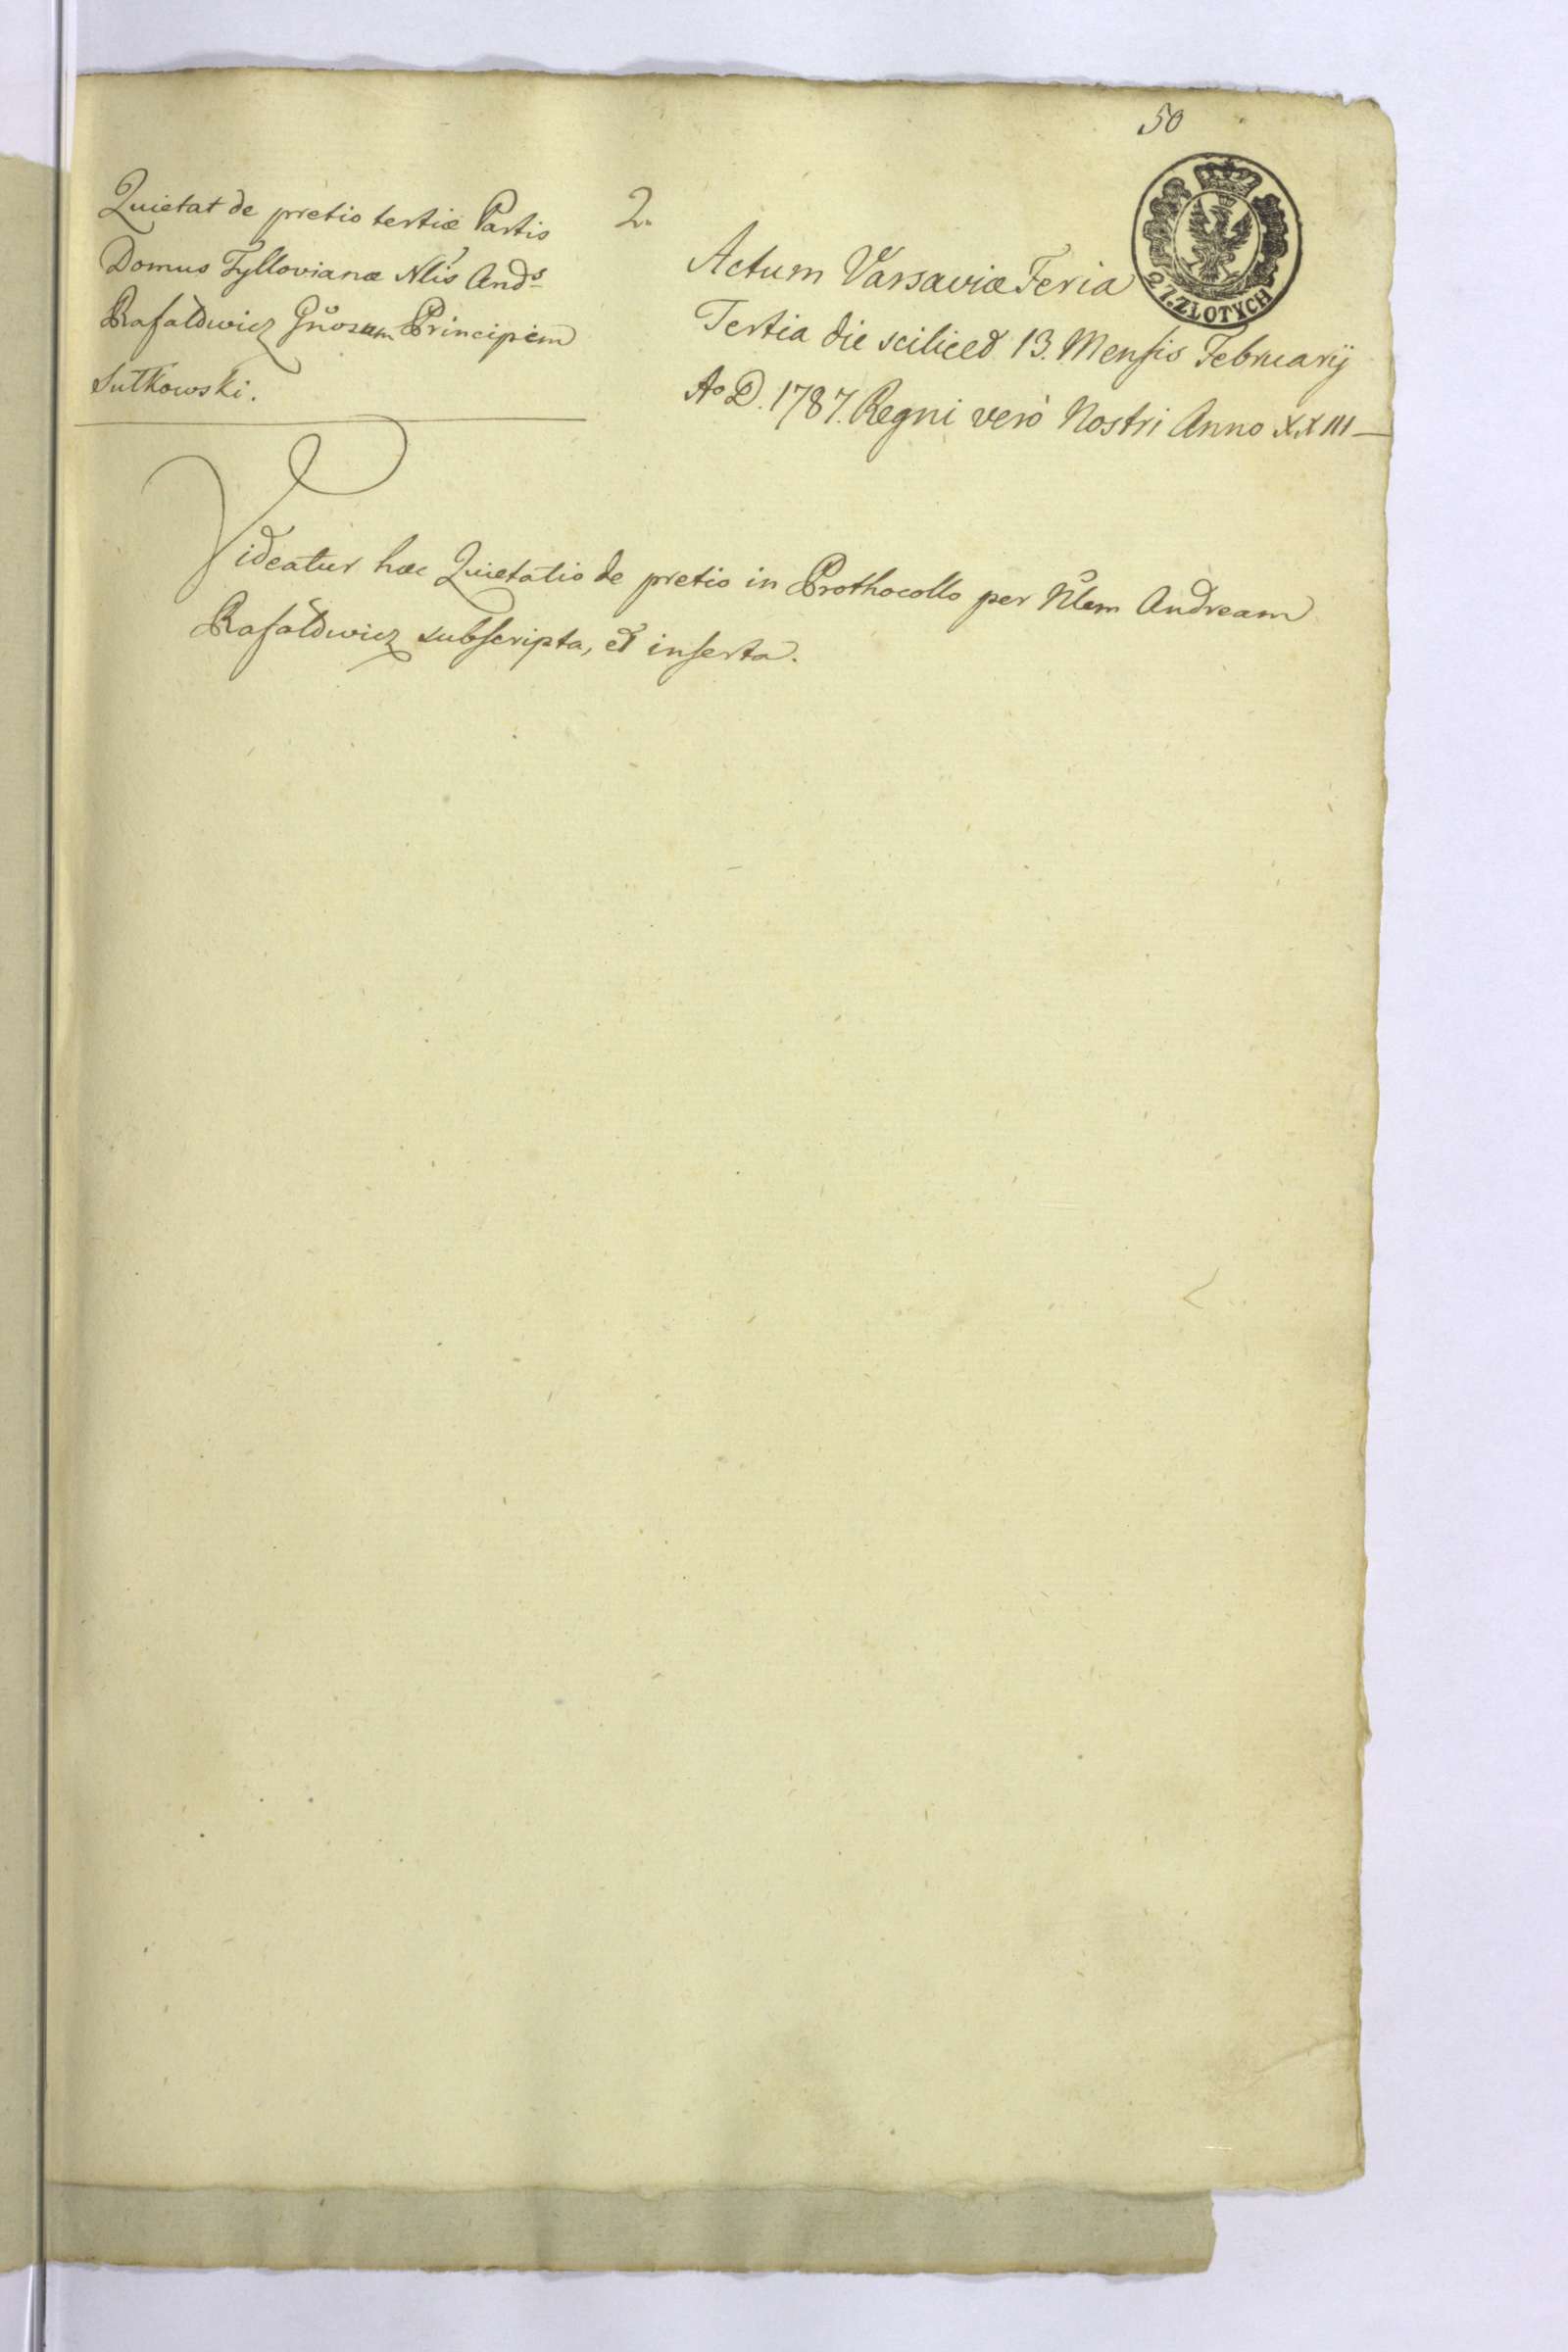 50
Quietat de pretio tertiæ Partis
Domus Tyllovianæ Nlis Ands
Rafałowicz Gnosum Principem
Sułkowski.
2.
Actum Varsaviæ Feria
Tertia die sciliced 13. Mensis Februarij
Ao D. 1787. Regni verò Nostri Anno XXIII—
27. ZŁOTYCH
Videatur hæc Quietatio de pretio in Prothocollo per Nlem Andream
Rafałowicz subscripta, et inserta.